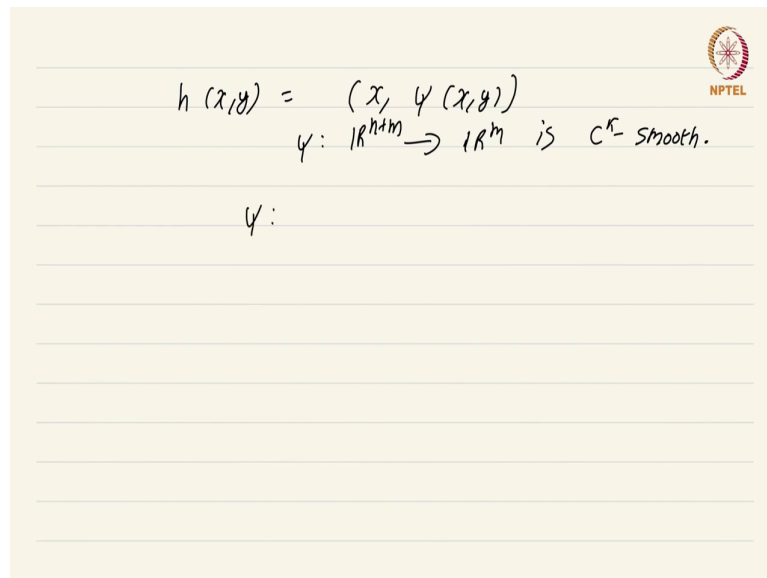 NPTEL
h (x,y) = (x, ψ (x,y))
ψ: ℝⁿ⁺ᵐ → ℝᵐ is Cᵏ- smooth.
ψ: